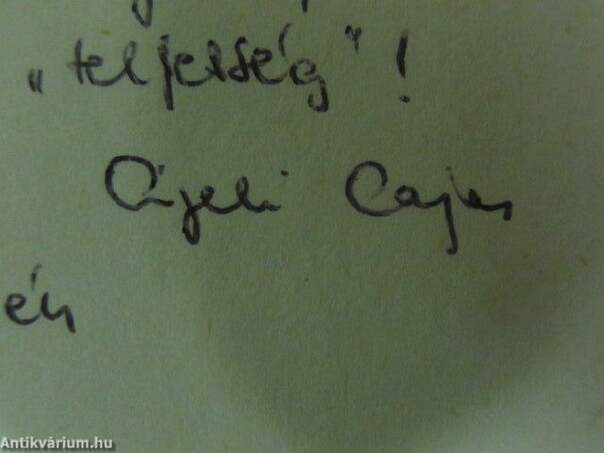 „teljesség”!
Lajos
én
Antikvárium.hu